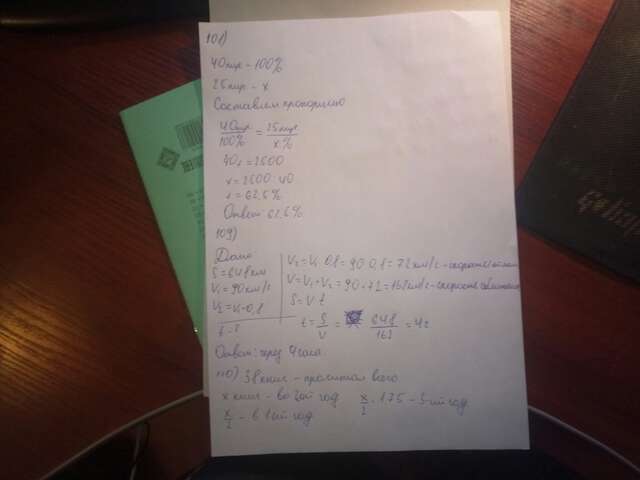 108)
40 пир - 100%
25 пир - x
Составим пропорцию
40пир/100% = 25пир/x%
40x = 2500
x = 2500:40
x = 62,5%
Ответ: 62,5%
109)
Дано
S = 648 км
V₁ = 90 км/г
V₂ = V₁·0,8
t = ?
V₂ = V₁·0,8 = 90·0,8 = 72 км/г - скорость
V = V₁ + V₂ = 90 + 72 = 162 км/г - скорость сближения
S = V t
t = S/V = 648/162 = 4г
Ответ: через 4 часа
110) 38 книг - прочитал всего
x книг - во 2ой год x/2 · 1.75 - 3ий год
x/2 - в 1ый год